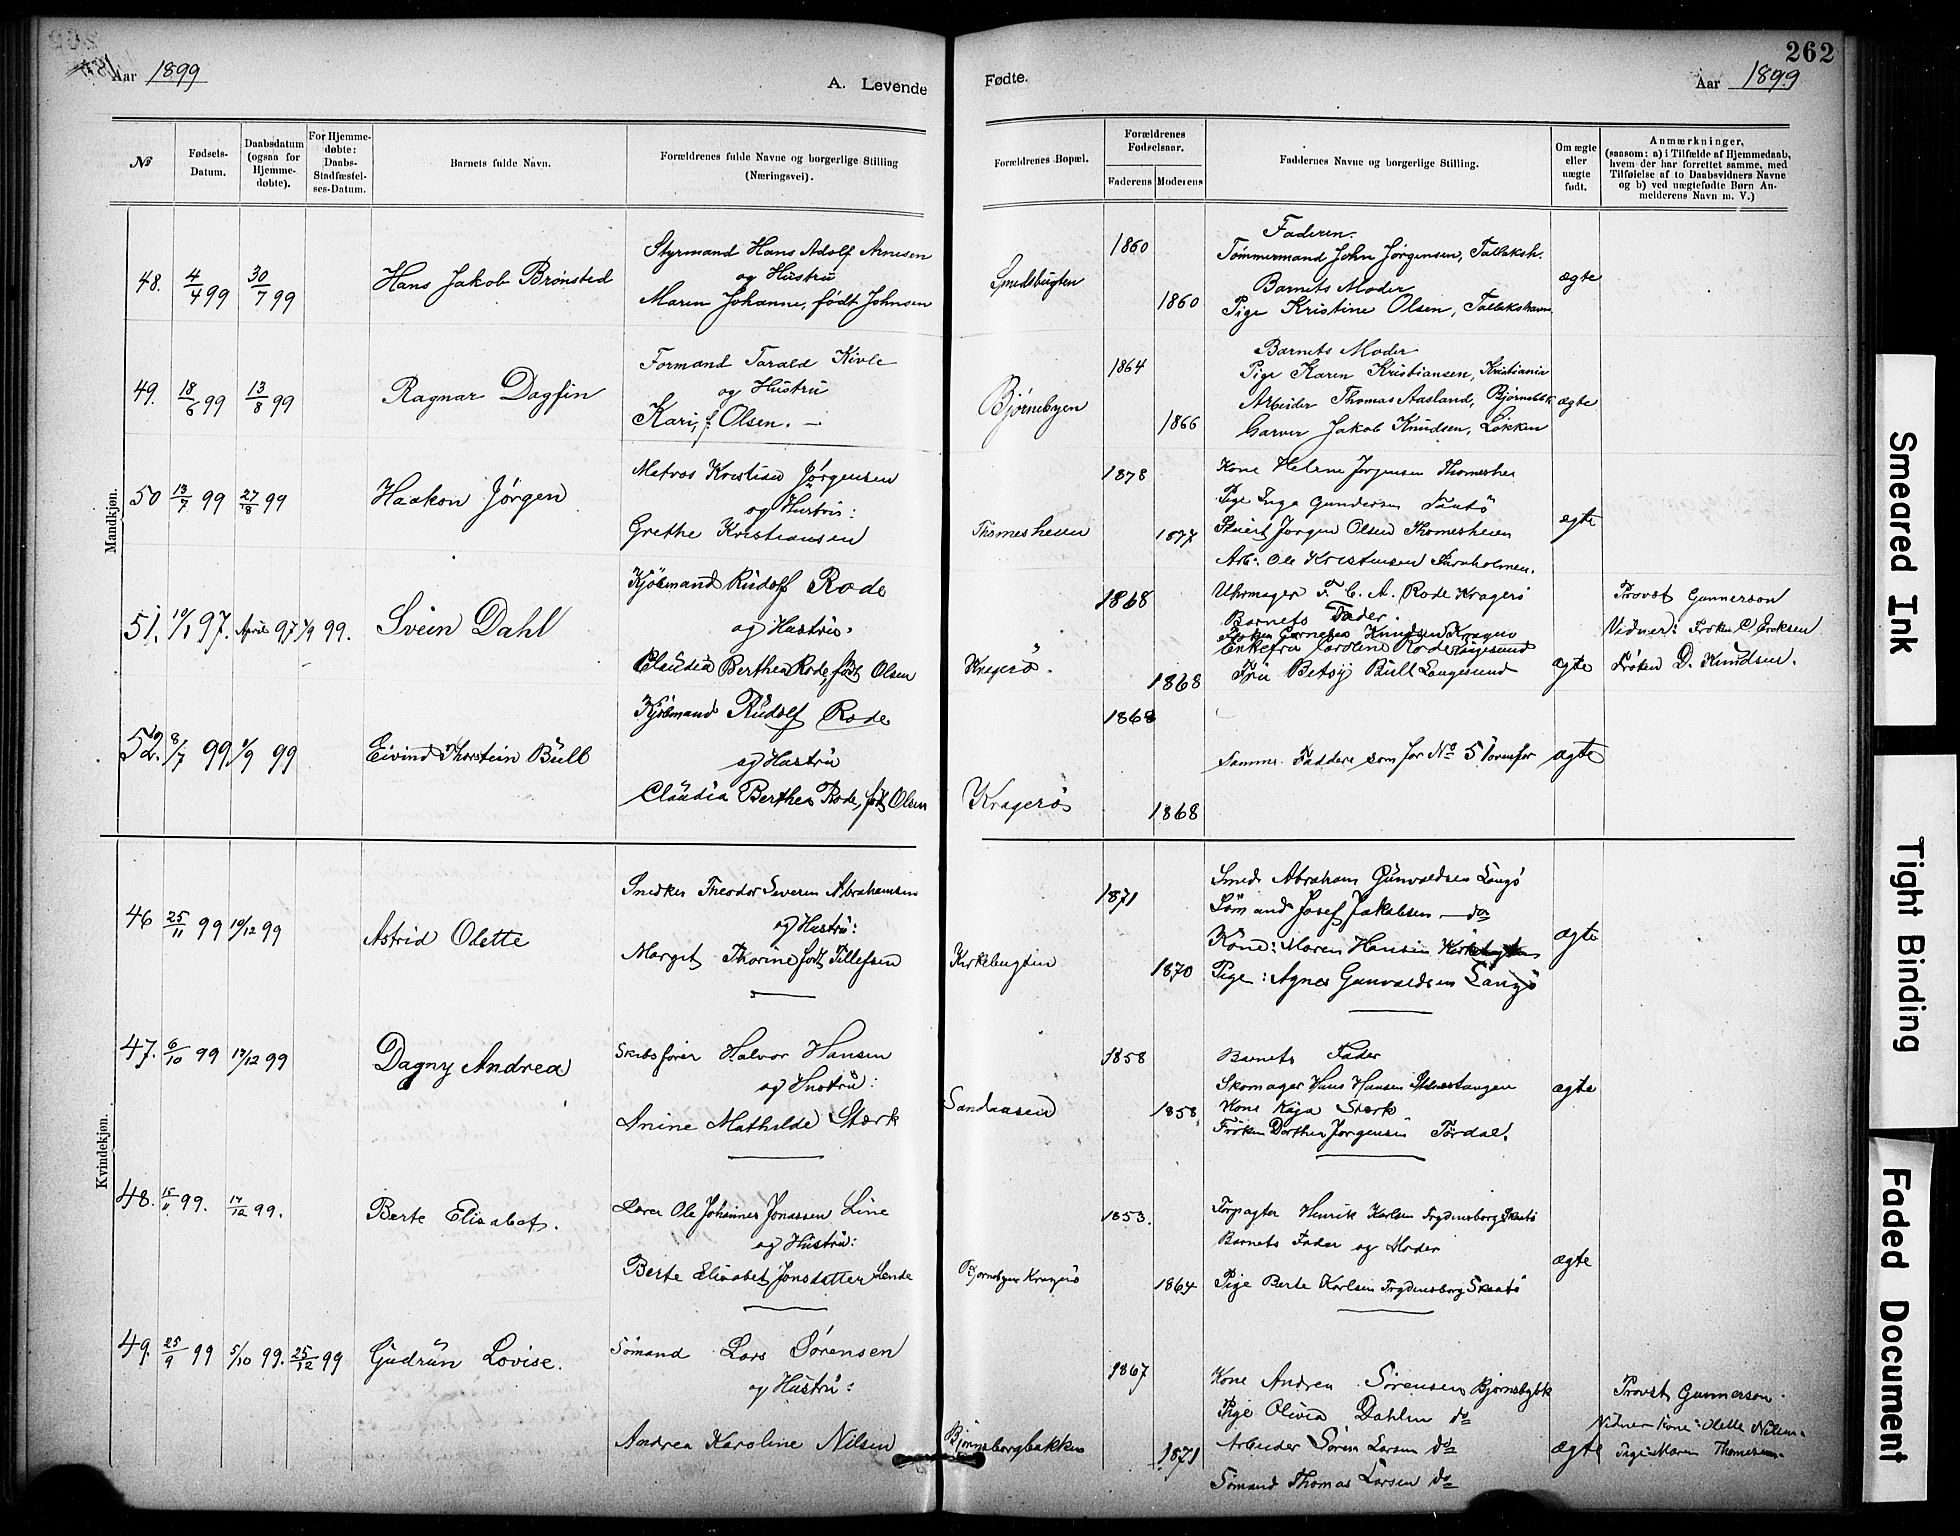 262
Aar 1899
A. Levende
Fødte.
Aar 1899
№
Fødsels-Datum.
Daabsdatum (ogsaa for Hjemme-døbte).
For Hjemme-døbte: Daabs-Stadfæstel-ses-Datum.
Barnets fulde Navn.
Forældrenes fulde Navne og borgerlige Stilling (Næringsvei).
Forældrenes Bopæl.
Forældrenes Fødselsaar.
Faderens
Moderens
Faddernes Navne og borgerlige Stilling.
Om ægte eller uægte født.
Anmærkninger, (saasom: a) i Tilfælde af Hjemmedaab, hvem der har forrettet samme, med Tilføielse af to Daabsvidners Navne og b) ved uægtefødte Børn An-melderens Navn m. V.)
Mandkjøn.
48. 4/4 99 30/7 99 Hans Jakob Brønsted
Styrmand Hans Adolf Arnesen
og Hustru
Maren Johanne, født Johnsen
Smedsbugten
1860
1860
Faderen.
Tømmermand John Jørgensen, Tallaksh.
Barnets Moder
Pige Kristine Olsen, Tallakshavn
ægte
49. 18/6 99 13/8 99 Ragnar Dagfin
Formand Tarald Kivle
og Hustru
Kari, f. Olsen. —
Bjørnebyen
1864
1866
Barnets Moder
Pige Karen Kristiansen, Kristiania
Arbeider Thomas Aasland, Bjørnebk
Garver Jakob Knudsen, Løkken
ægte
50 13/7 99 27/8 99 Haakon Jørgen
Matros Kristian Jørgensen
og Hustru:
Grethe Kristiansen
Thomesheien
1878
1877
Kone Helene Jørgensen Thomeshei
Pige Inga Gundersen
Stuert Jørgen Olsen Thomesheien
Arb: Ole Kristensen Furuholmen.
ægte
51. 10/1 97. April 97 1/9 99. Svein Dahl
Kjøbmand Rudolf Rode
og Hustru.
Claudia Berthea Rode, født Olsen
Kragerø.
1868
1868
Uhrmager F. C. A. Rode Kragerø
Barnets Fader.
Frøken Knudsen Kragerø
Enkefru Caroline Rode Langesund
Fru Betsy Bull Langesund
ægte
Provst Gunnerson
Vidner: Frøken C. Eriksen
Frøken D. Knudsen.
52. 8/7 99 1/9 99 Eivind Thorstein Bull
Kjøbmand Rudolf Rode
og Hustru
Claudia Berthea Rode, født Olsen
Kragerø
1868
1868
Samme Faddere som for № 51 ovenfor
ægte
Kvindekjøn.
46 25/11 99 10/12 99 Astrid Olette
Snedker Theodor Severin Abrahamsen
og Hustru:
Margit Thorine født Tellefsen
Kirkebugten
1871
1870
Smed Abraham Gunvaldsen Langø
Sømand Josef Jakobsen — do
Kone: Maren Hansen Kirkebugten
Pige: Agnes Gunvaldsen Langø
ægte
47. 6/10 99 17/12 99 Dagny Andrea
Skibsfører Halvor Hansen
og Hustru:
Anine Mathilde Stærk
Sandaasen
1858
1858
Barnets Fader
Skomager Hans Hansen Stenestangen
Kone Kaja Stærk
Frøken Dorthea Jørgensen Tørdal.
ægte
48. 15/11 99. 17/12 99. Berte Elisabet.
Lærer Ole Johannes Jonassen Line
og Hustru:
Berte Elisabet Jonsdatter Lende
Bjørnebyen Kragerø
1853.
1864
Forpagter Henrik Karlsen Frydensborg Skaatø
Barnets Fader og Moder
Pige Berte Karlsen Frydensborg Skaatø
ægte
49. 25/9 99 5/10 99. 25/12 99 Gudrun Lovise.
Sømand Lars Sørensen
og Hustru:
Andrea Karoline Nilsen
Bjørnsborgbakken
1867
1871
Kone Andrea Sørensen Bjørnsbgbk
Pige Olivia Dahlen do
Arbeider Søren Larsen do
Sømand Thomas Larsen do
ægte
Provst Gunnerson.
Vidner Kone: Olette Nilsen.
Pige: Maren Thomesen.
Smeared Ink
Tight Binding
Faded Document